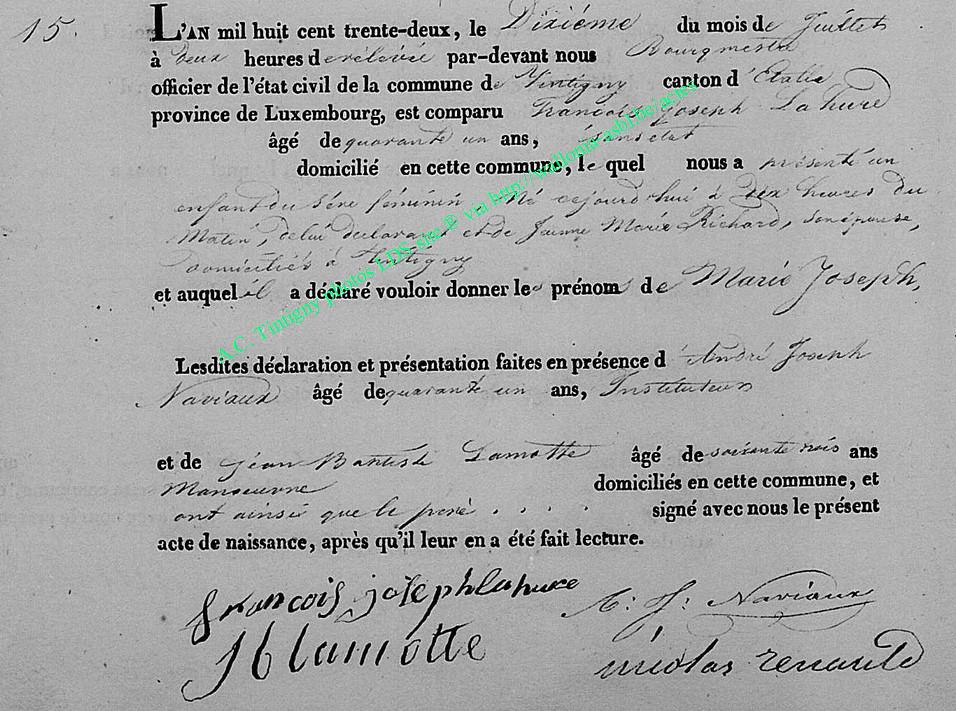 15.
L'AN mil huit cent trente-deux, le Dixiéme du mois de Juillet
à deux heures de relevée par-devant nous Bourgmestre
officier de l'état civil de la commune de Tintigny canton d'Etalle
province de Luxembourg, est comparu Francois Joseph Lahure
âgé de quarante un ans, sans état
domicilié en cette commune, le quel nous a présenté un
enfant du séxe féminin, Né cejourd'hui à dix heures du
Matin, de lui déclarant et de Jeanne Marie Richard, son épouse,
domiciliés à Tintigny
et auquel il a déclaré vouloir donner les prénoms de Marie Joseph,
Lesdites déclaration et présentation faites en présence d'André Joseph
Naviaux âgé de quarante un ans, Instituteur
et de Jean Baptiste Lamotte âgé de soixante trois ans
Manoeuvre domiciliés en cette commune, et
ont ainsie que le peré . . . . signé avec nous le présent
acte de naissance, après qu'il leur en a été fait lecture.
francois joseph lahure A: J: Naviaux
JB lamotte nicolas renauld
A.C. Tintigny photos LDS site ® via http://wallonia-asbl.be/actes